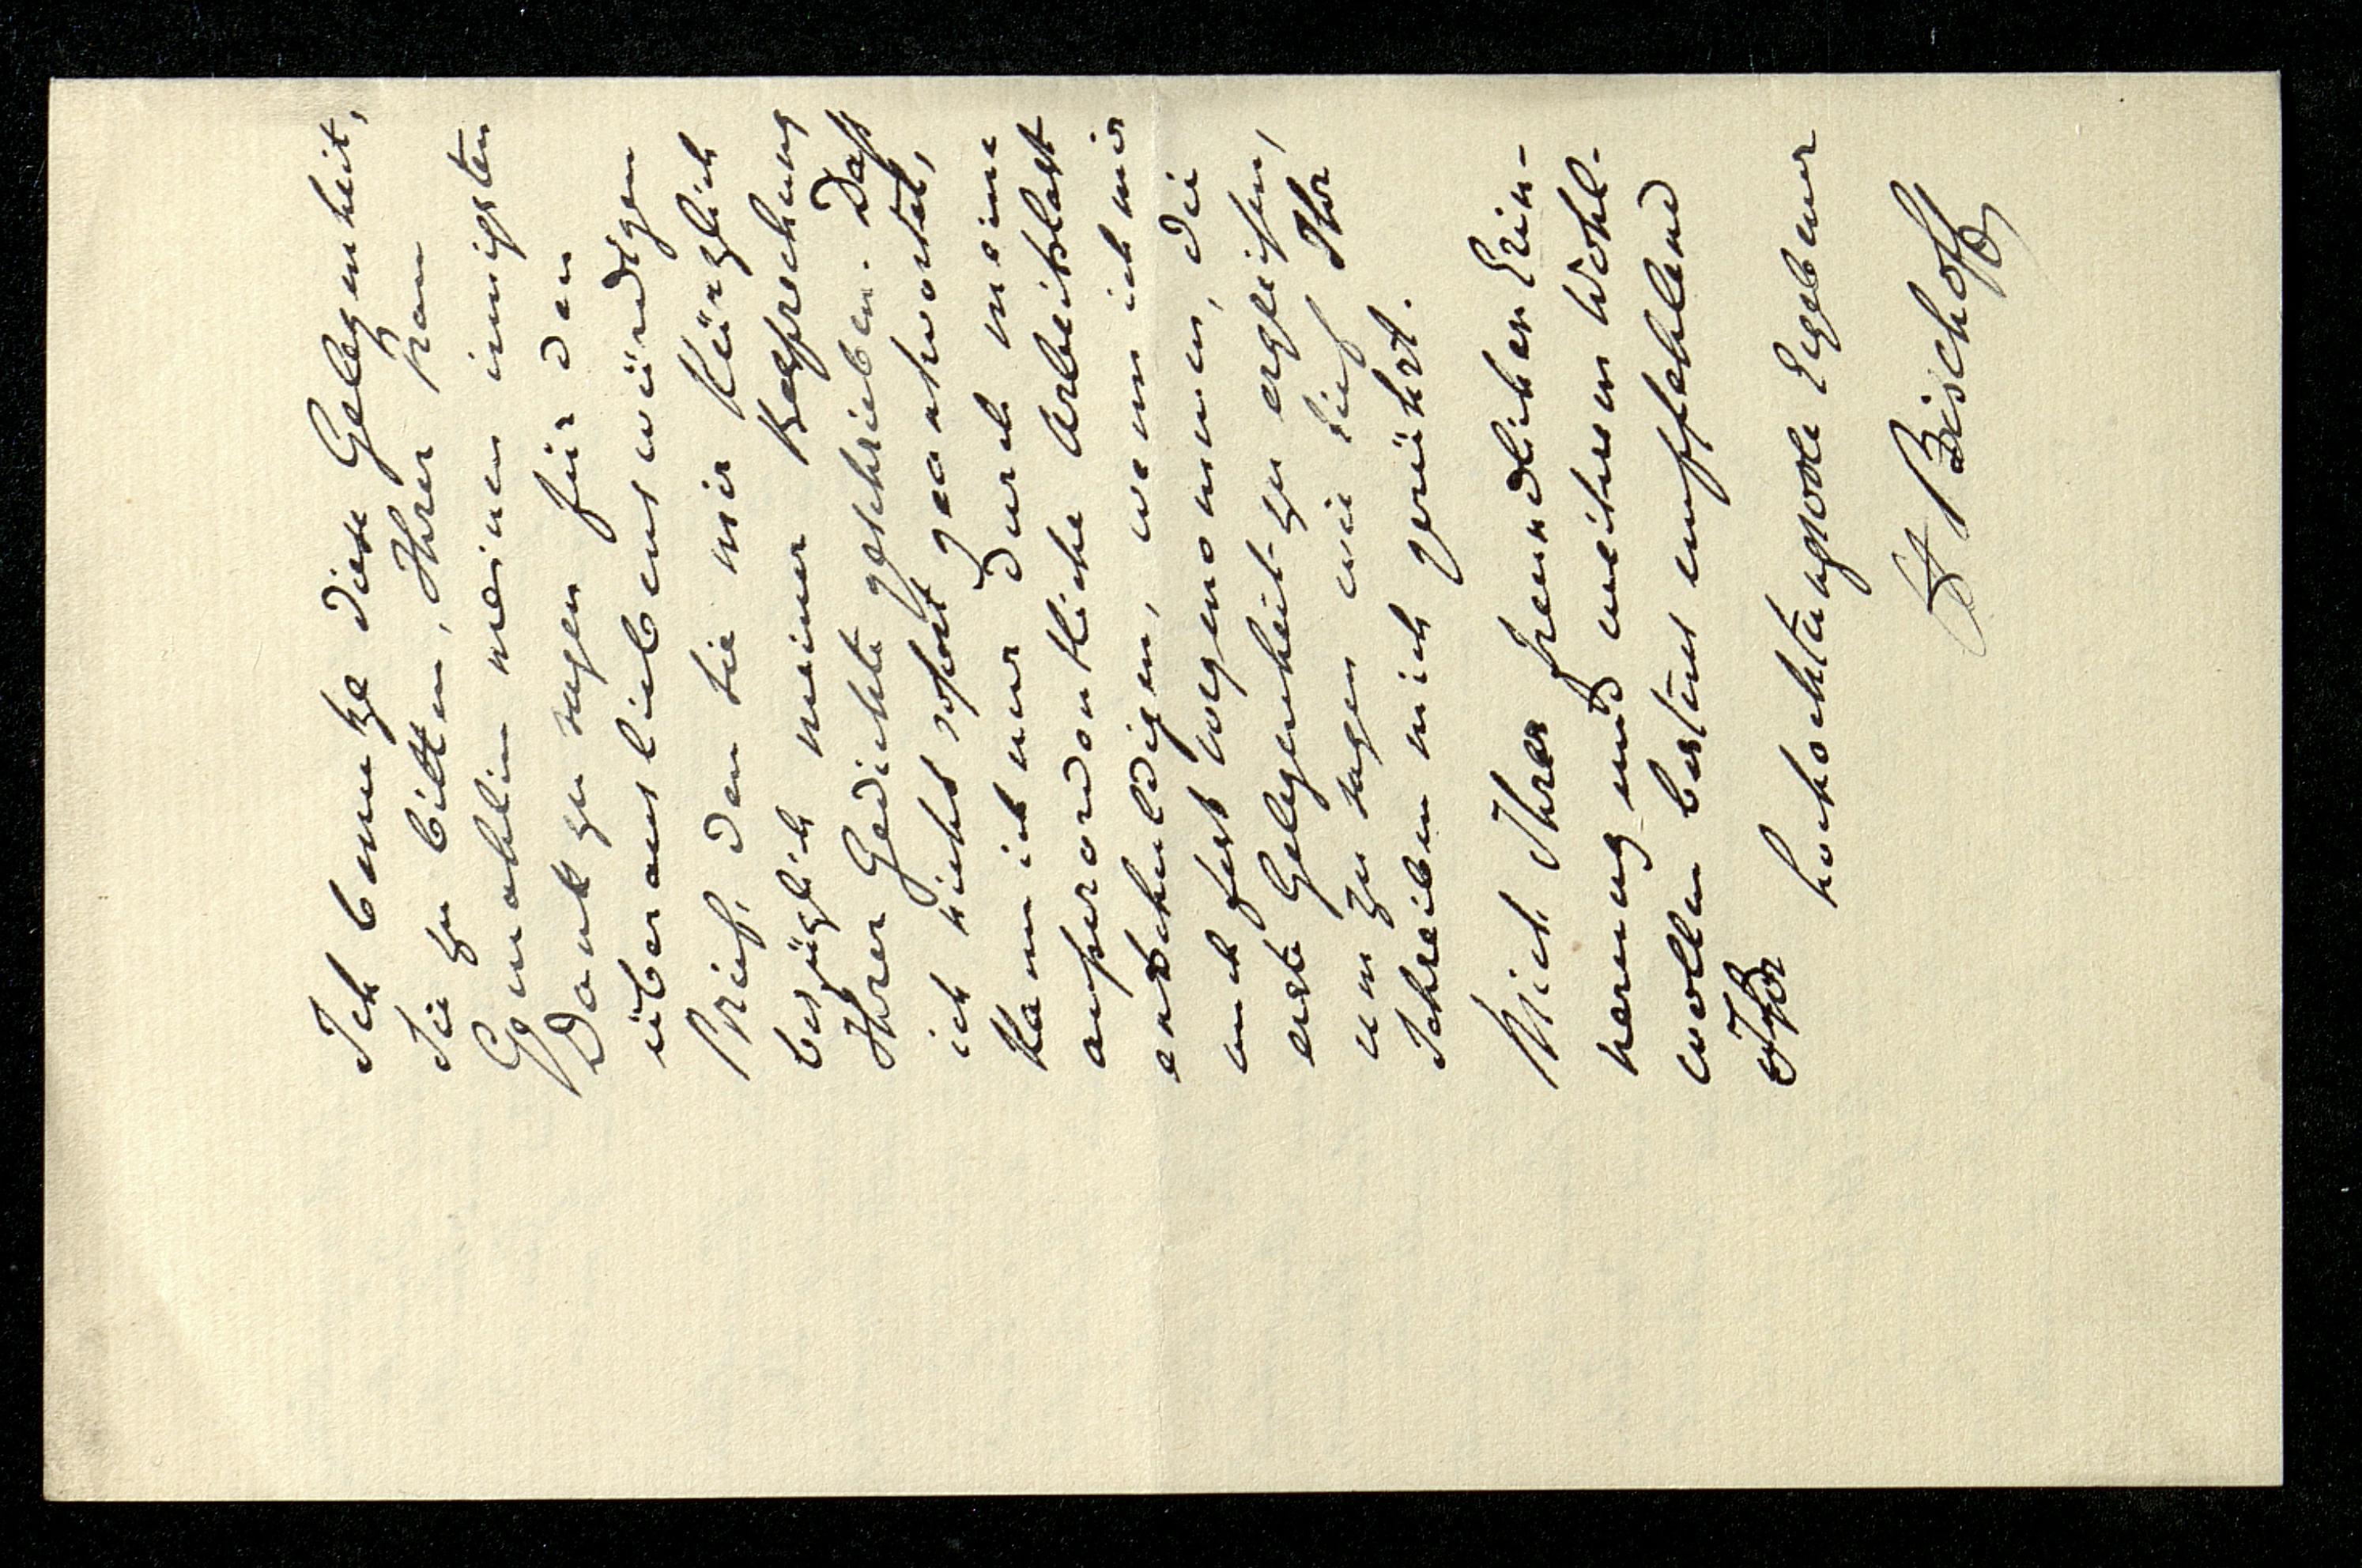 Ich benutze diese Gelegenheit,
Sie zu bitten, Ihrer Frau
Gemahlin meinen innigsten
Dank zu sagen für den
überaus liebenswürdigen
Brief, den Sie mir kürzlich
bezüglich meiner Besprechung
Ihrer Gedichte geschrieben. Daß
ich nicht sofort geantwortet,
kann ich nur durch meine
außerordentliche Arbeitslast
entschuldigen, wenn ich mir
auch fest vorgenommen, die
erste Gelegenheit zu ergreifen,
um zu sagen wie tief Ihr
Schreiben mich gerührt.
Mich Ihrer freundlichen Erin-
nerung und weiteren Wohl-
wollen bestens empfehlend
Ihr
hochachtungsvoll Ergebener
Bischoff